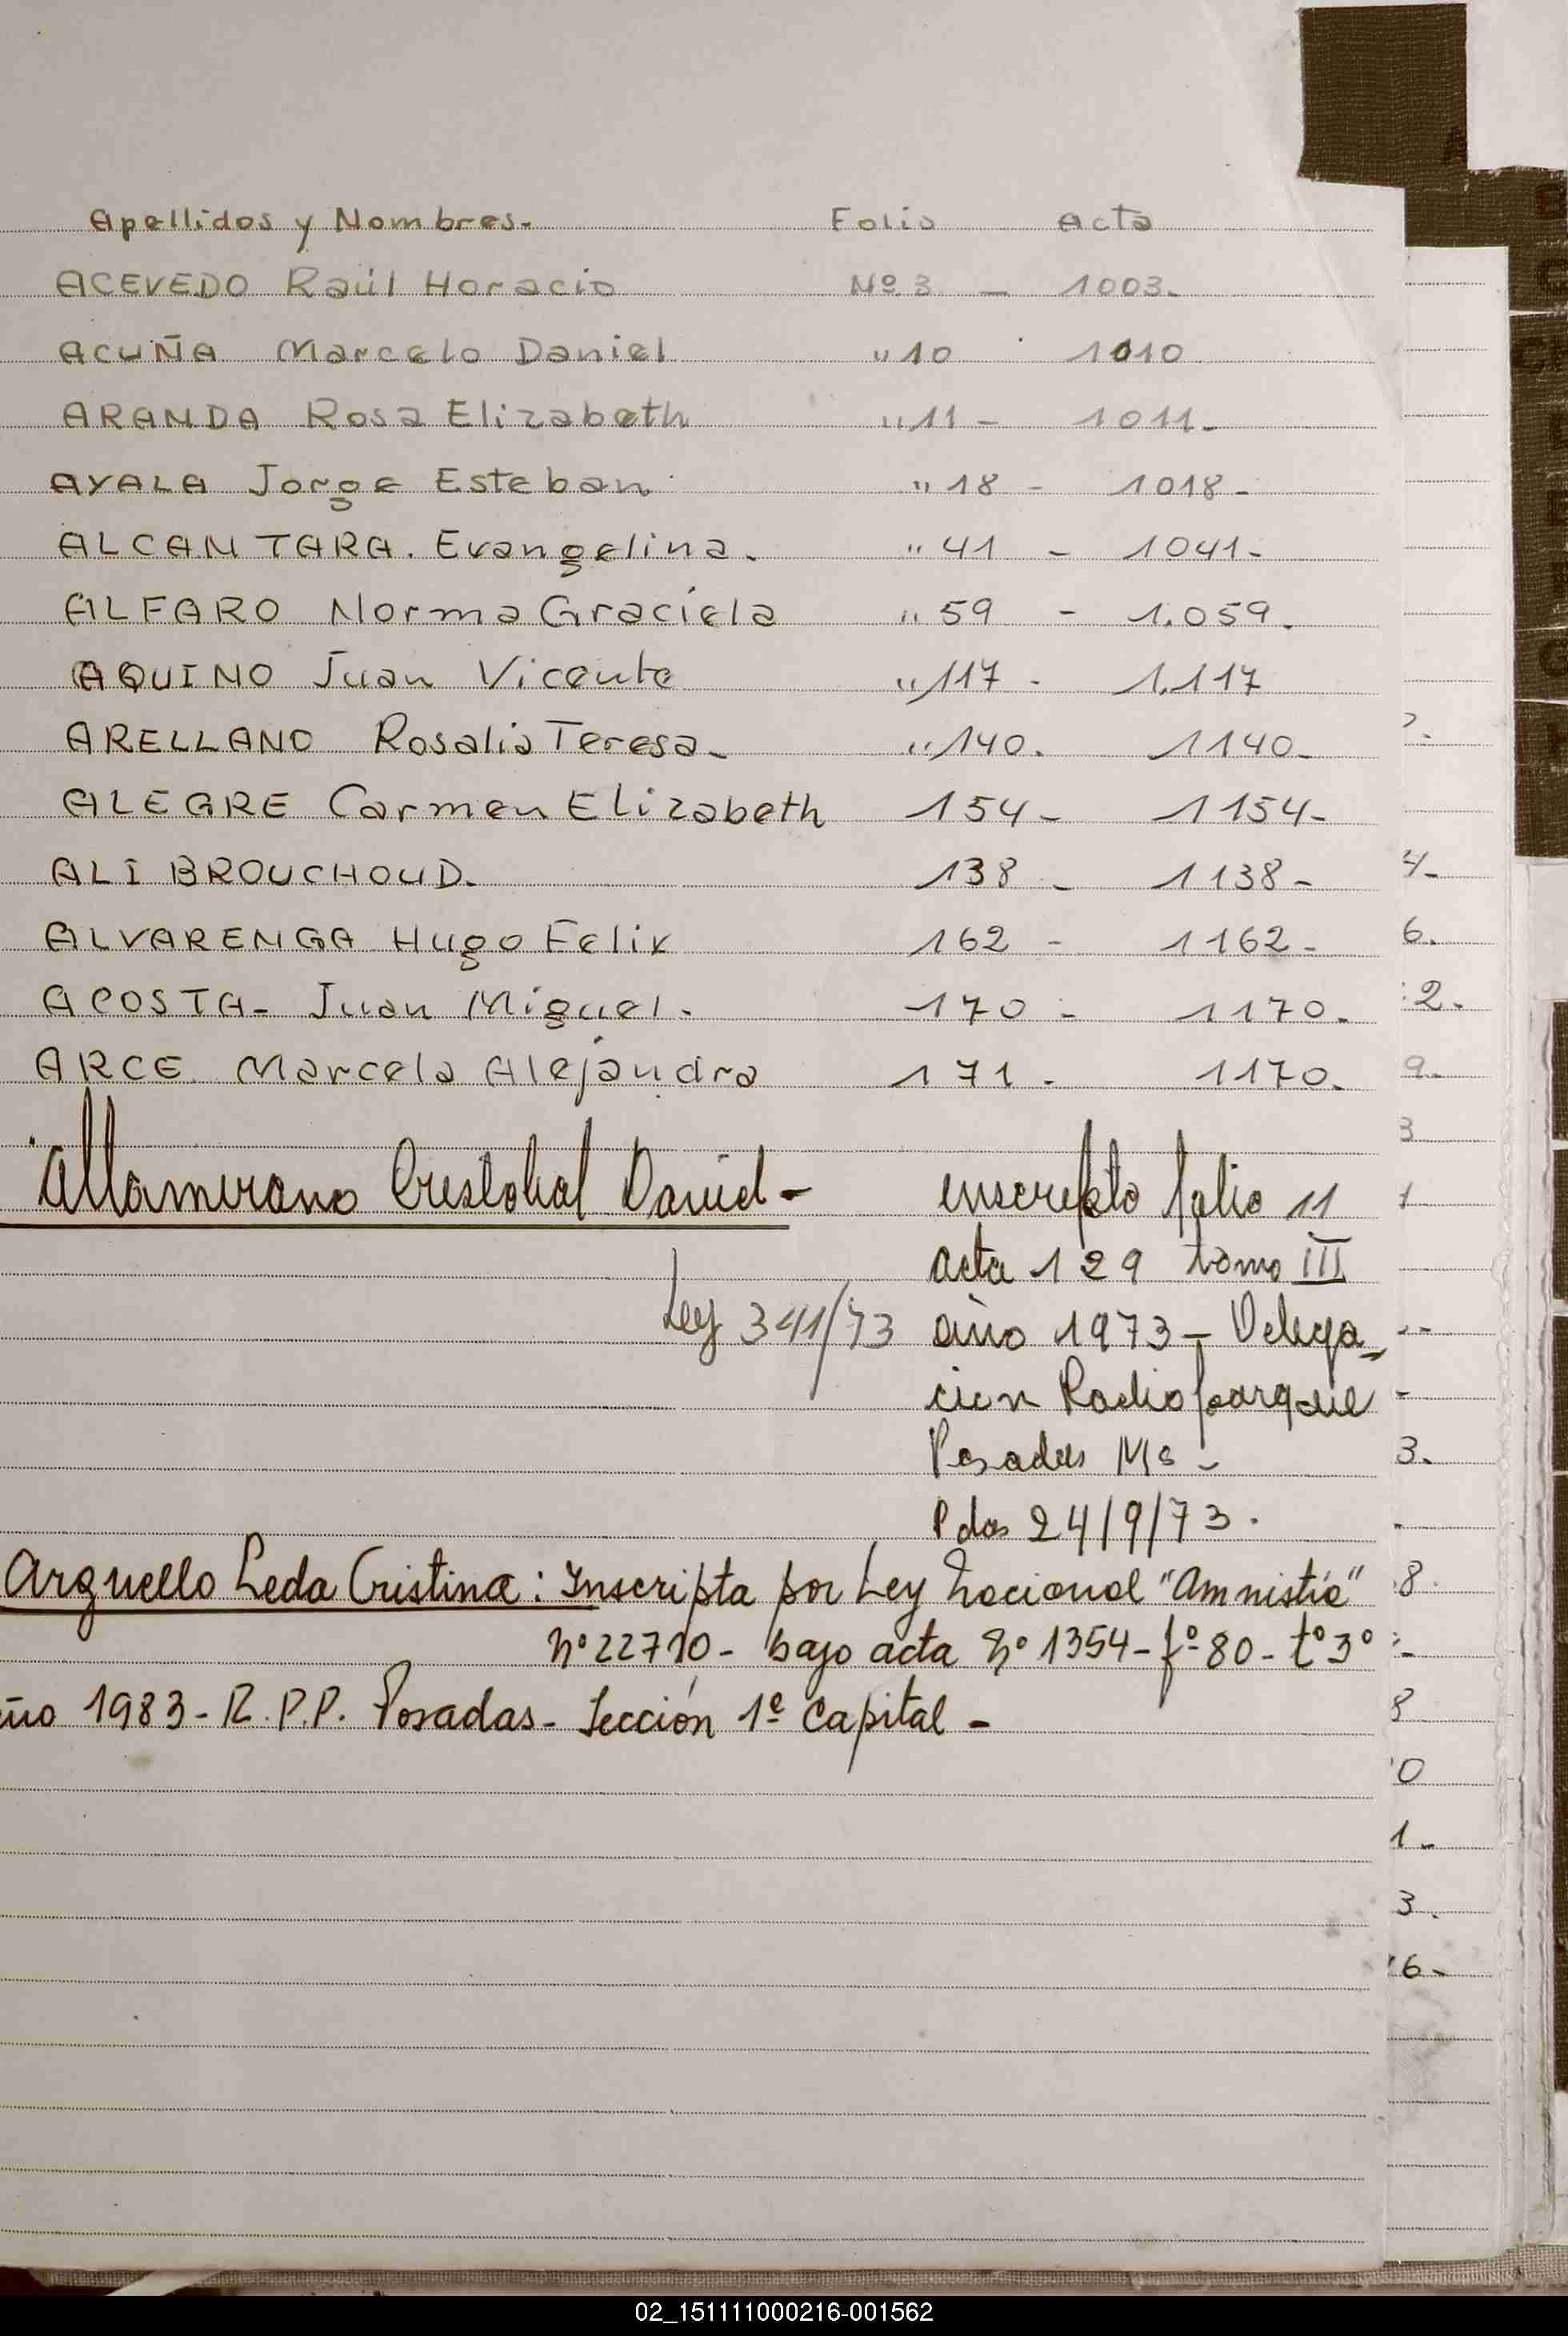 Apellidos y Nombres. Folio Acta
ACEVEDO Raúl Horacio Nº 3 - 1003.
ACUÑA Marcelo Daniel " 10 1010
ARANDA Rosa Elizabeth " 11 - 1011.
AYALA Jorge Esteban " 18 - 1018-
ALCANTARA. Evangelina. " 41 - 1041-
ALFARO Norma Graciela " 59 - 1.059.
AQUINO Juan Vicente " 117 - 1.117
ARELLANO Rosalia Teresa- " 140. 1140-
ALEGRE Carmen Elizabeth 154- 1154-
ALI BROUCHOUD. 138 - 1138-
ALVARENGA Hugo Felix 162 - 1162-
ACOSTA- Juan Miguel. 170 - 1170.
ARCE Marcela Alejandra 171 - 1170.
Altamirano Cristobal David- inscripto folio 11
acta 129 tomo III
Ley 341/73 año 1973 - Delega-
cion Radioparque
Posadas Ms -
Pdas 24/9/73.
Arguello Leda Cristina: Inscripta por Ley Nacional "Amnistía"
Nº 22710- bajo acta Nº 1354- fº 80- tº 3º
ño 1983- R.P.P. Posadas- Sección 1º Capital -
02_151111000216-001562